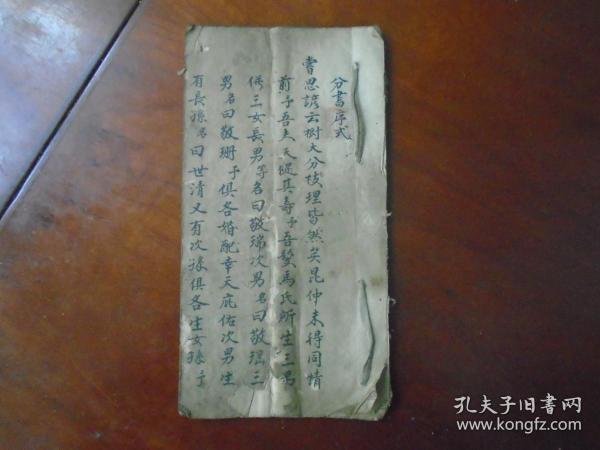 分書序式
嘗思諺云樹大分枝理皆然矣昆仲未得同情
前予吾夫天促其壽予吾娶馬氏所生三男
併三女長男等名曰敬瑞次男名曰敬瑶三
男名曰敬珊予俱各婚配幸天庇佑次男生
有長孫名曰世清又有次孫俱各生女孫予
孔夫子旧书网
www.kongfz.com